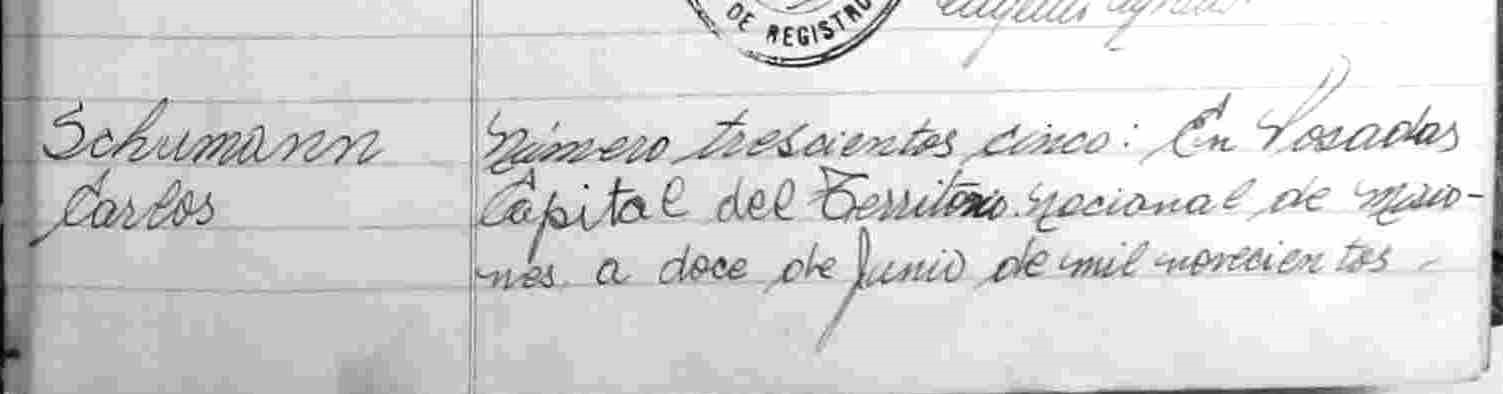 DE REGISTRO
Schumann
Carlos
Número trescientos cinco: En Posadas
Capital del Territorio nacional de Misio-
nes a doce de Junio de mil novecientos